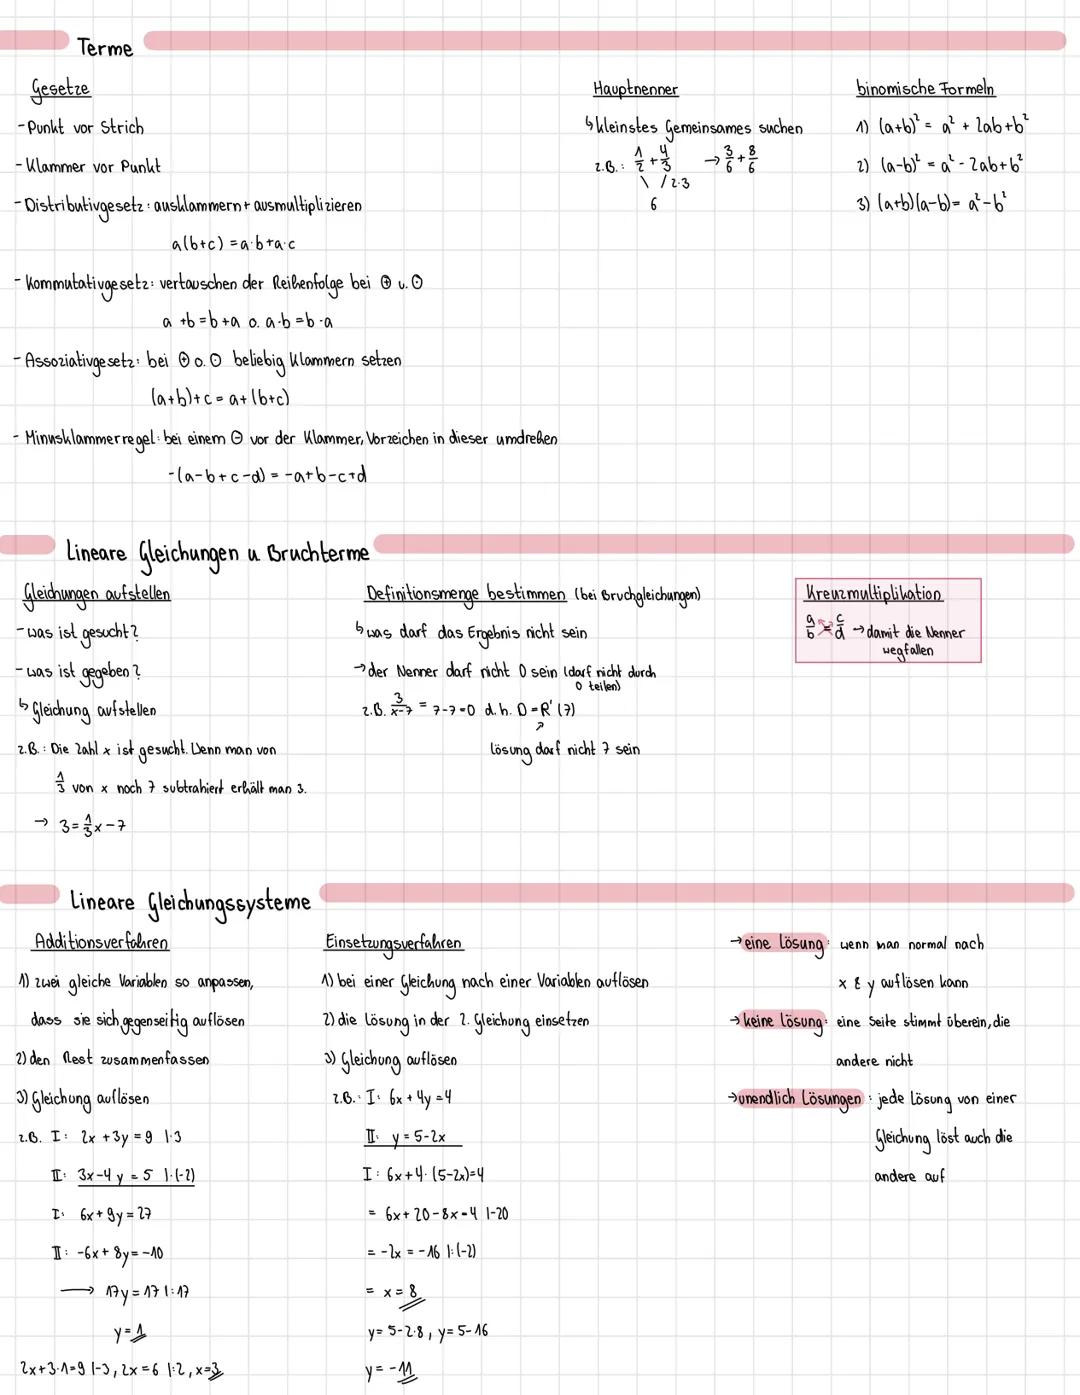 Terme
Gesetze
- Punkt vor Strich
- Klammer vor Punkt
- Distributivgesetz: ausklammern + ausmultiplizieren
a(b+c) = a·b+a·c
- Kommutativgesetz: vertauschen der Reihenfolge bei ⊕ u. ⊙
a +b = b +a o. a·b = b·a
- Assoziativgesetz: bei ⊕ o. ⊙ beliebig Klammern setzen
(a+b)+c = a+(b+c)
- Minusklammerregel: bei einem ⊖ vor der Klammer, Vorzeichen in dieser umdrehen
-(a-b+c-d) = -a+b-c+d
Hauptnenner
↳ kleinstes Gemeinsames suchen
z.B.: 1/2 + 4/3 → 3/6 + 8/6
\ / 2·3
6
binomische Formeln
1) (a+b)² = a² + 2ab+b²
2) (a-b)² = a² - 2ab+b²
3) (a+b)(a-b) = a²-b²
Lineare Gleichungen u. Bruchterme
Gleichungen aufstellen
- was ist gesucht?
- was ist gegeben?
↳ Gleichung aufstellen
z.B.: Die Zahl x ist gesucht. Wenn man von
1/3 von x noch 7 subtrahiert erhält man 3.
→ 3 = 1/3 x - 7
Definitionsmenge bestimmen (bei Bruchgleichungen)
↳ was darf das Ergebnis nicht sein
→ der Nenner darf nicht 0 sein (darf nicht durch
0 teilen)
z.B. 3/x-7 = 7-7=0 d.h. D=R' (7)
Lösung darf nicht 7 sein
Kreuzmultiplikation
a/b = c/d → damit die Nenner
wegfallen
Lineare Gleichungssysteme
Additionsverfahren
1) zwei gleiche Variablen so anpassen,
dass sie sich gegenseitig auflösen
2) den Rest zusammenfassen
3) Gleichung auflösen
z.B. I: 2x +3y = 9 |·3
II: 3x-4y = 5 |·(-2)
I: 6x + 9y = 27
II: -6x + 8y = -10
→ 17y = 17 |:17
y = 1
2x+3·1=9 |-3, 2x = 6 |:2, x=3
Einsetzungsverfahren
1) bei einer Gleichung nach einer Variablen auflösen
2) die Lösung in der 2. Gleichung einsetzen
3) Gleichung auflösen
z.B.: I: 6x + 4y = 4
II: y = 5-2x
I: 6x + 4·(5-2x)=4
= 6x + 20-8x = 4 |-20
= -2x = -16 |:(-2)
= x = 8
y= 5-2·8, y= 5-16
y = -11
→ eine Lösung: wenn man normal nach
x & y auflösen kann
→ keine Lösung: eine Seite stimmt überein, die
andere nicht
→ unendlich Lösungen: jede Lösung von einer
Gleichung löst auch die
andere auf